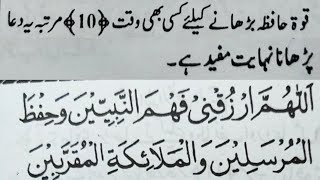 قوۃ حافظہ بڑھانے کیلئے کسی بھی وقت ﴿10﴾ مرتبہ یہ دعا
پڑھانا نہایت مفید ہے۔
اَللّٰهُمَّ ارْزُقْنِيْ فَهْمَ النَّبِيِّيْنَ وَحِفْظَ
الْمُرْسَلِيْنَ وَالْمَلَائِكَةِ الْمُقَرَّبِيْنَ